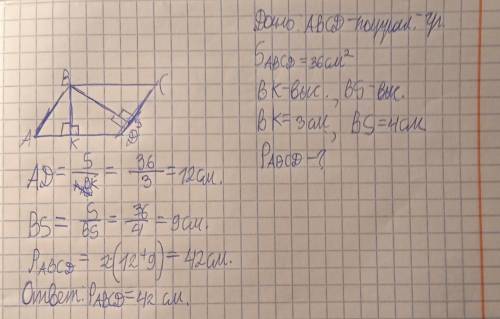 Дано ABCD-паралл.-гр.
S ABCD = 36см²
BK=выс., BS=выс.
BK=3см, BS=4см
P ABCD - ?
B C
A K D S
AD = S/BK = 36/3 = 12см.
BS = S/BS = 36/4 = 9см.
P ABCD = 2(12+9) = 42см.
Ответ: P ABCD = 42 см.